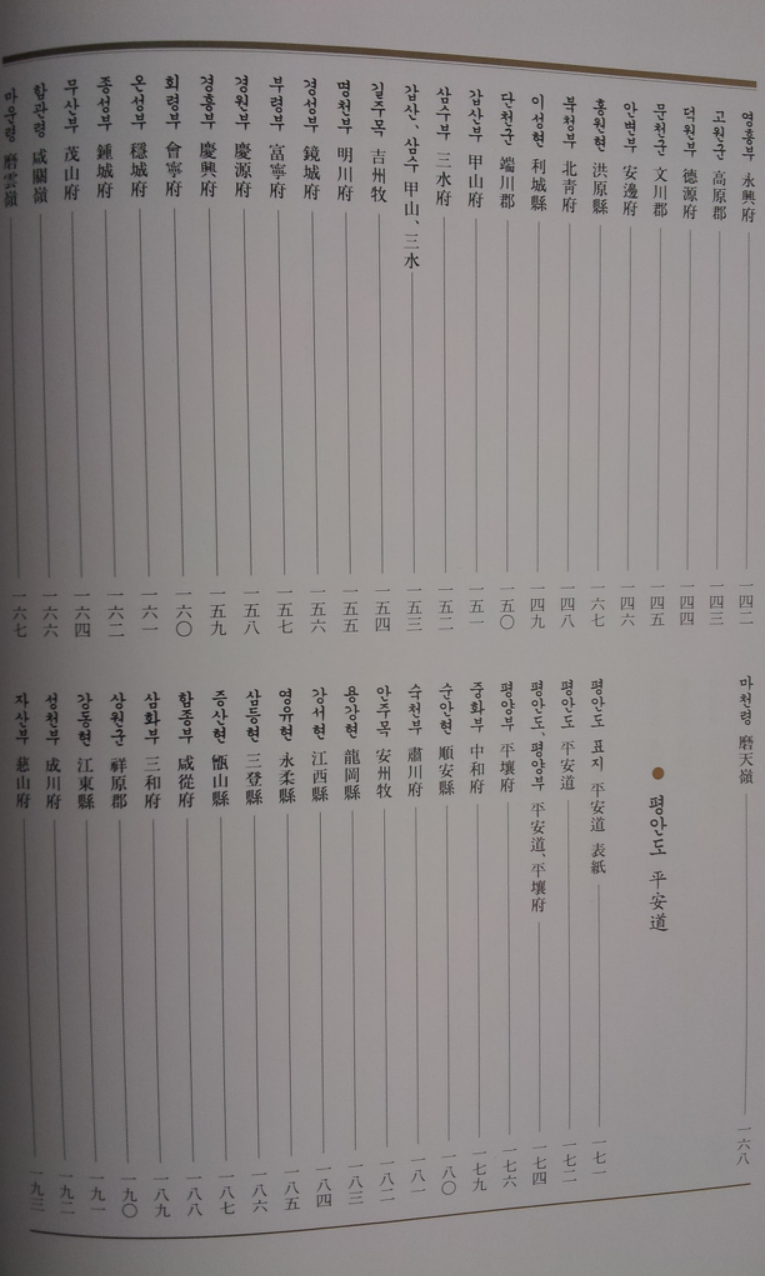 영흥부 永興府 一四二
고원군 高原郡 一四三
덕원부 德源府 一四四
문천군 文川郡 一四五
안변부 安邊府 一四六
홍원현 洪原縣 一六七
북청부 北靑府 一四八
이성현 利城縣 一四九
단천군 端川郡 一五〇
갑산부 甲山府 一五一
삼수부 三水府 一五二
갑산、삼수 甲山、三水 一五三
길주목 吉州牧 一五四
명천부 明川府 一五五
경성부 鏡城府 一五六
부령부 富寧府 一五七
경원부 慶源府 一五八
경흥부 慶興府 一五九
회령부 會寧府 一六〇
온성부 穩城府 一六一
종성부 鍾城府 一六二
무산부 茂山府 一六四
함관령 咸關嶺 一六六
마운령 磨雲嶺 一六七
마천령 磨天嶺 一六八
● 평안도 平安道
평안도 표지 平安道 表紙 一七一
평안도 平安道 一七二
평안도、평양부 平安道、平壤府 一七四
평양부 平壤府 一七六
중화부 中和府 一七九
순안현 順安縣 一八〇
숙천부 肅川府 一八一
안주목 安州牧 一八二
용강현 龍岡縣 一八三
강서현 江西縣 一八四
영유현 永柔縣 一八五
삼등현 三登縣 一八六
증산현 甑山縣 一八七
함종부 咸從府 一八八
삼화부 三和府 一八九
상원군 祥原郡 一九〇
강동현 江東縣 一九一
성천부 成川府 一九二
자산부 慈山府 一九三